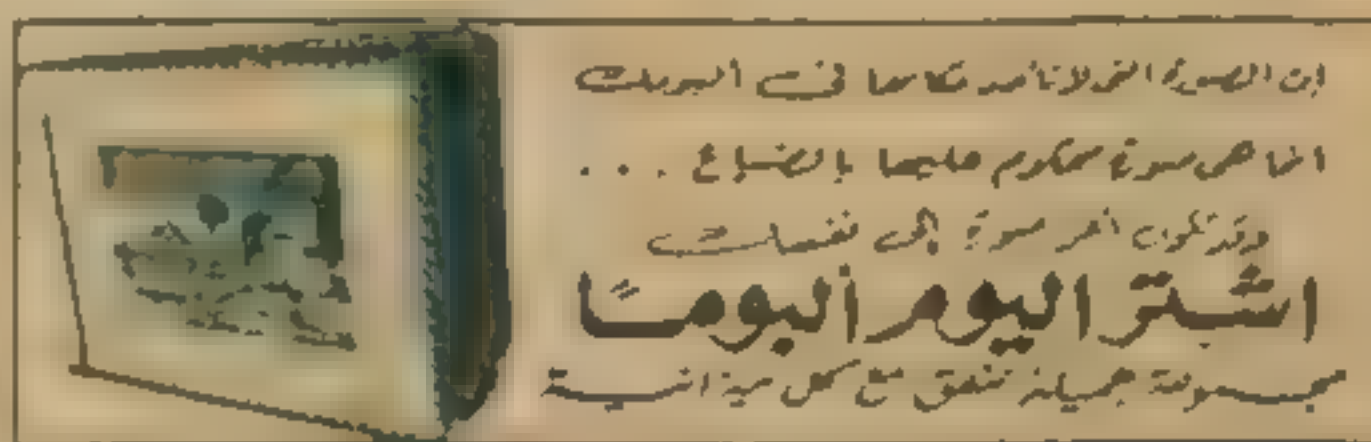 إن الصورة التى لا تأخذ مكانها فى ألبومك
انها هى صورة محكوم عليها بالضياع . . .
وقد تكون أعز صورة إلى نفسك
اشتر اليوم ألبومًا
بسرعة جميلة تتفق مع كل ميزانية